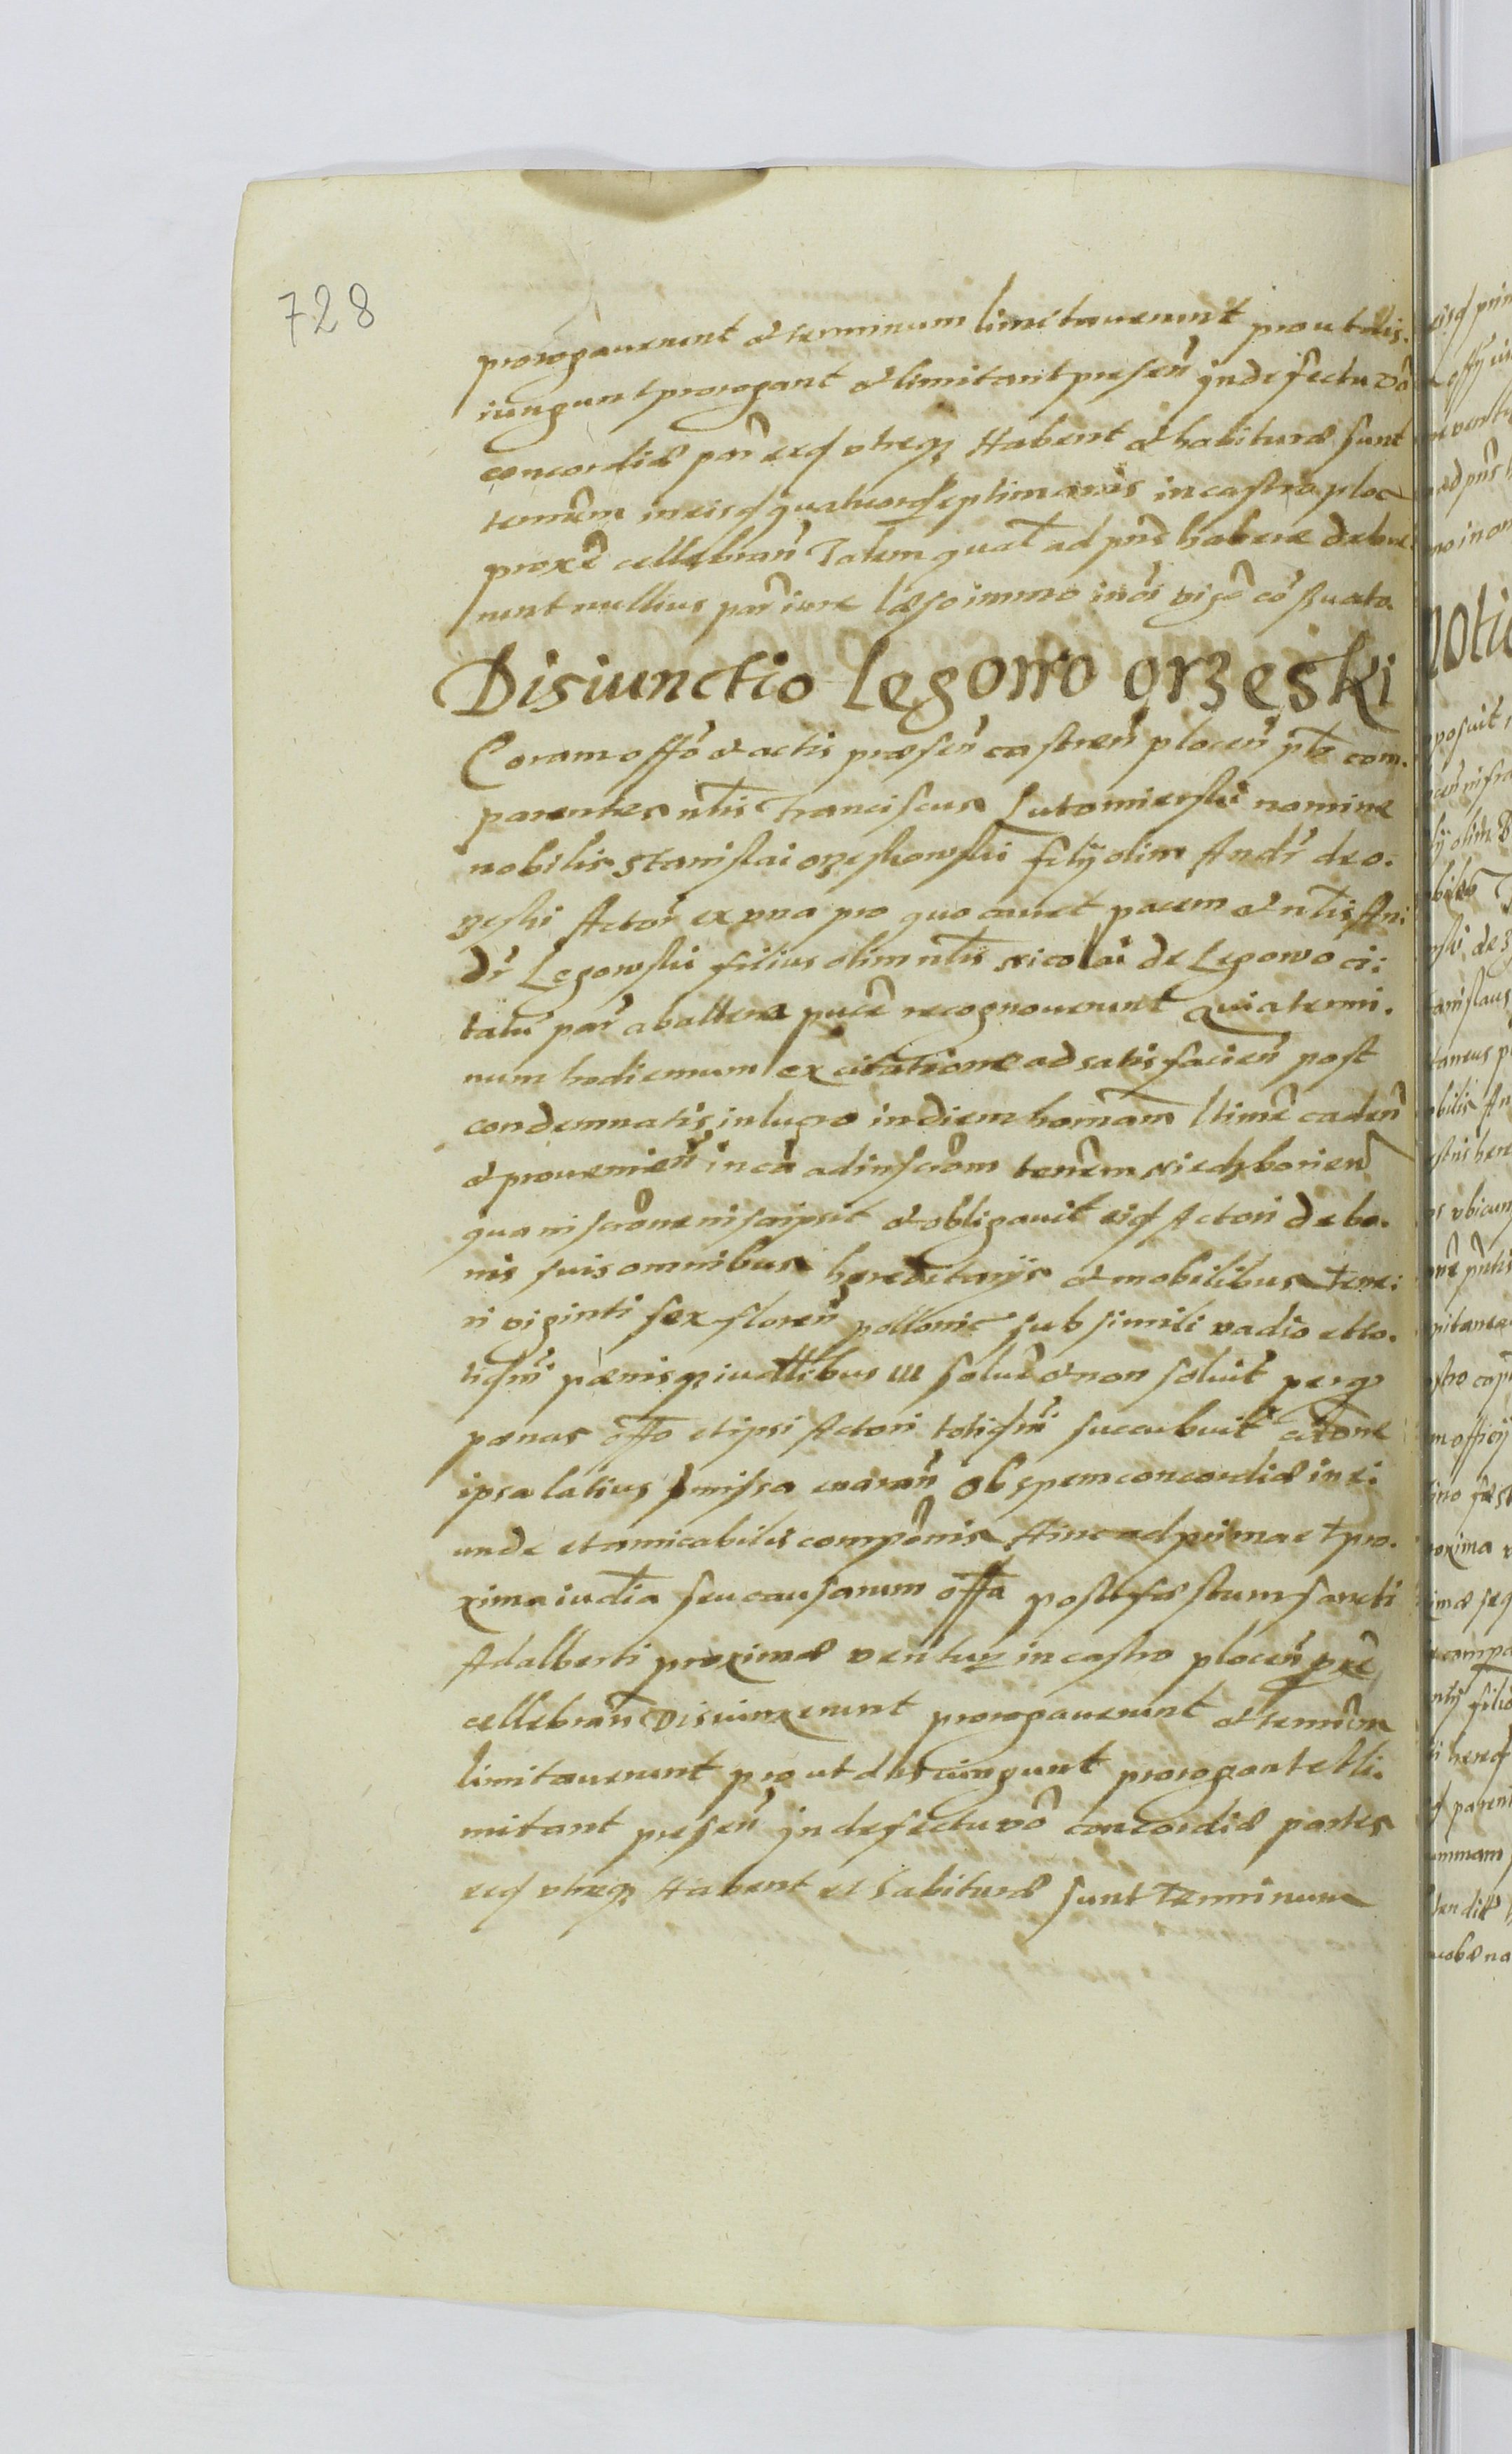 728
prorogaverunt et terminum limitaverunt prout dis.
iungunt prorogant et limitant presen̄ In defectu vō
concordiæ par̄ eed utreq; Habent et habituræ sunt
termīm in eisd quatuord septimanis in castro ploc̄
proxē cellebran̄ Talem qual̄ ad pn̄s habere debue:
runt nullius par̄ iure læso immo in oi̅ vigē cō seruato
Disiunctio Legowo orzeski
Coram offō et actis præsen̄ castren̄ plocen̄ plr̄ com.
parentes nlis Franciscus Lutomierski nomine
nobilis Stanislai orzeskowski filij olim Andr̄ de o.
rzeski Actor̄ ex una pro quo cavet pacem et nlis An:
dr̄ Legowski filius olim nlis Nicolai de Legowo ci:
tatū par̄ ab altera pucē recognoverunt Quia termi.
num hodiernum ex citatione ad satisfacien̄ post
condemnatis in lucro in diem hornam ltimē caden̄
et provenien̄ in cā ad inscrōm terrēm Niedzborien̄
qua inscrōne inscripsit et obligavit eid Actori de bo.
nis suis omnibus hereditarijs et mobilibus terre:
ri viginti sex floren̄ pollonic̄ sub simili vadio et to.
tidm̄ pænisq; iudtlibus III solvē et non solvit perq;
pænas offo et ipsi Actori totidm̄ succubuit citōne
ipsa latius pmissa enarran̄ Ob spem concordiæ ine:
unde et amicabilis compōnis Hinc ad prima et pro.
xima iudtia seu causarum offa post festum sancti
Adalberti proximæ ventur̄ in castro plocen̄ pxē
cellebran̄ Disiunxerunt prorogaverunt et termīm
limitaverunt prout disiungunt prorogant et li.
mitant presen̄ In defectu vō concordiæ partes
eed utreq; Habent et habituræ sunt Terminum